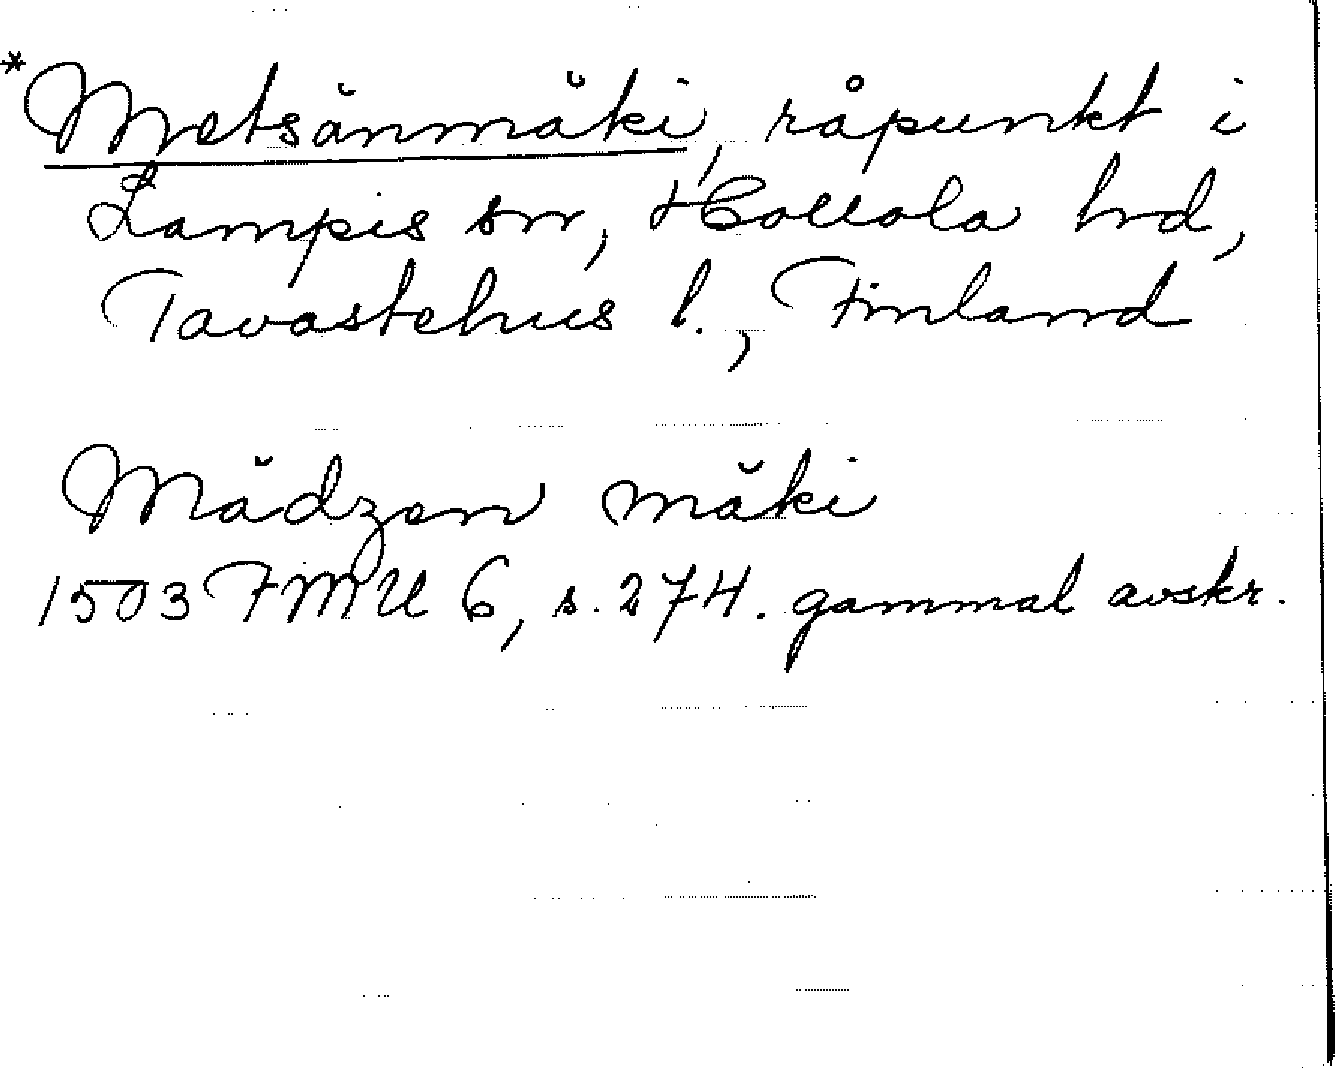 *Metsänmäki, råpunkt i
Lampis sn, Hollola hrd,
Tavastehus l., Finland
Mädzen mäki
1503 FMU 6, s. 274. gammal avskr.